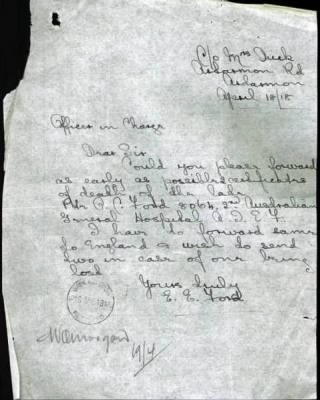 C/o Mrs Duck
Artarmon Rd
Artarmon
April 18/18
Officer in Charge
Dear Sir
Could you please forward
as early as possible certificate
of death of the late
Pte C. Ford 8064 2nd Australian
General Hospital A. I. F.
I have to forward same
to England & wish to send
two in case of one being
lost
Yours truly
E. E. Ford
19/4